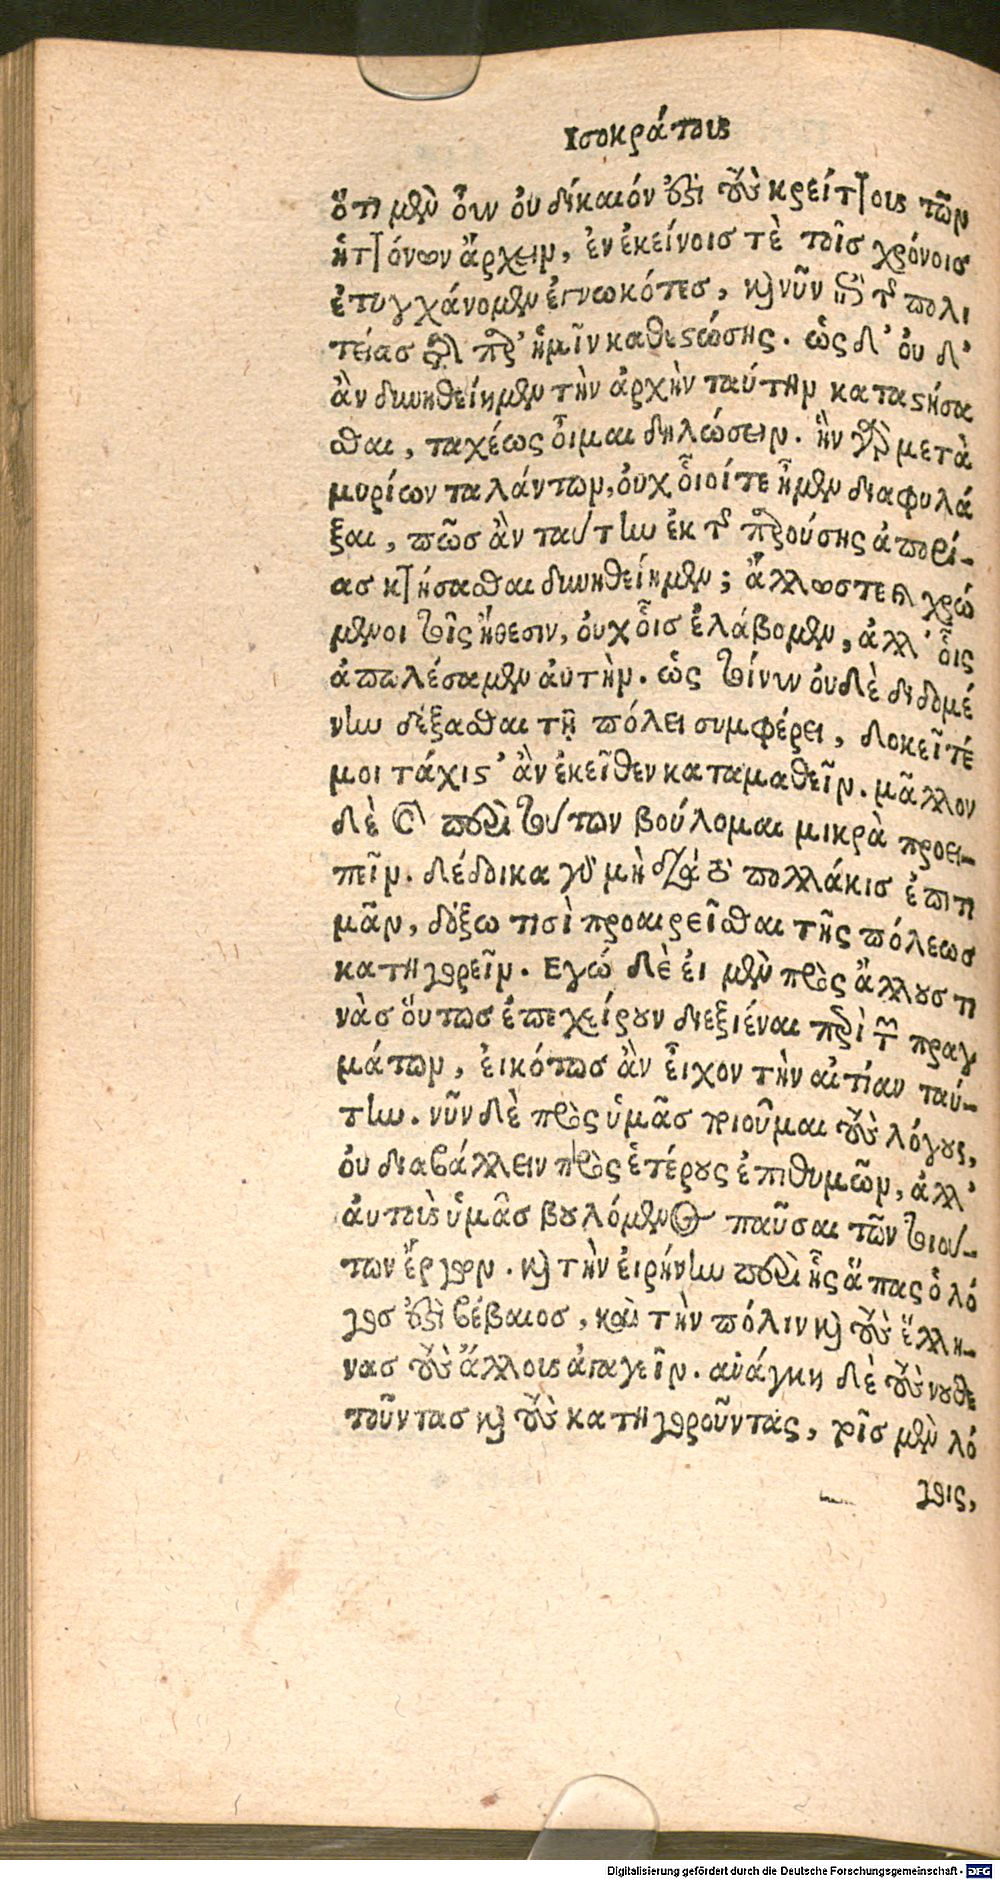 Ισοκράτους
ὅτι μὲν οὖν οὐ δίκαιόν ἐστι τοὺς κρείττους τῶν
ἡττόνων ἄρχειν, ἐν ἐκείνοις τὲ τοῖς χρόνοις
ἐτυγχάνομεν ἐγνωκότες, καὶ νῦν ἐπὶ τῆς πολι
τείας τῆς παρ' ἡμῖν καθεστώσης. ὡς δ' οὐ δ'
ἂν δυνηθείημεν τὴν ἀρχὴν ταύτην καταστήσα
σθαι, ταχέως οἶμαι δηλώσειν. ἣν γὰρ μετὰ
μυρίων ταλάντων, οὐχ οἷοί τε ἦμεν διαφυλά
ξαι, πῶς ἂν ταύτην ἐκ τῆς παρούσης ἀπορί-
ας κτήσασθαι δυνηθείημεν; ἄλλως τε καὶ χρώ
μενοι τοῖς ἤθεσιν, οὐχ οἷς ἐλάβομεν, ἀλλ' οἷς
ἀπωλέσαμεν αὐτὴν. ὡς τοίνυν οὐδὲ διδομέ
νην δέξασθαι τῇ πόλει συμφέρει, δοκεῖτέ
μοι τάχιστ' ἂν ἐκεῖθεν καταμαθεῖν. μᾶλλον
δὲ καὶ περὶ τούτων βούλομαι μικρὰ προει-
πεῖν. δέδοικα γὰρ μὴ διὰ τὸ πολλάκις ἐπιτι
μᾶν, δόξω τισὶ προαιρεῖσθαι τῆς πόλεως
κατηγορεῖν. Εγώ δὲ εἰ μὲν πρὸς ἄλλους τι
νὰς οὕτως ἐπεχείρουν διεξιέναι περὶ τῶν πραγ
μάτων, εἰκότως ἂν εἶχον τὴν αἰτίαν ταύ-
την. νῦν δὲ πρὸς ὑμᾶς ποιοῦμαι τοὺς λόγους,
οὐ διαβάλλειν πρὸς ἑτέρους ἐπιθυμῶν, ἀλλ'
αὐτοὺς ὑμᾶς βουλόμενος παῦσαι τῶν τοιού-
των ἔργων. καὶ τὴν εἰρήνην περὶ ἧς ἅπας ὁ λό
γος ἐστὶ βέβαιος, καὶ τὴν πόλιν καὶ τοὺς ἕλλη-
νας τοὺς ἄλλους ἀπαγεῖν. ανάγκη δὲ τοὺς νουθε
τοῦντας καὶ τοὺς κατηγοροῦντας, τοῖς μὲν λό
γοις,
Digitalisierung gefördert durch die Deutsche Forschungsgemeinschaft - DFG